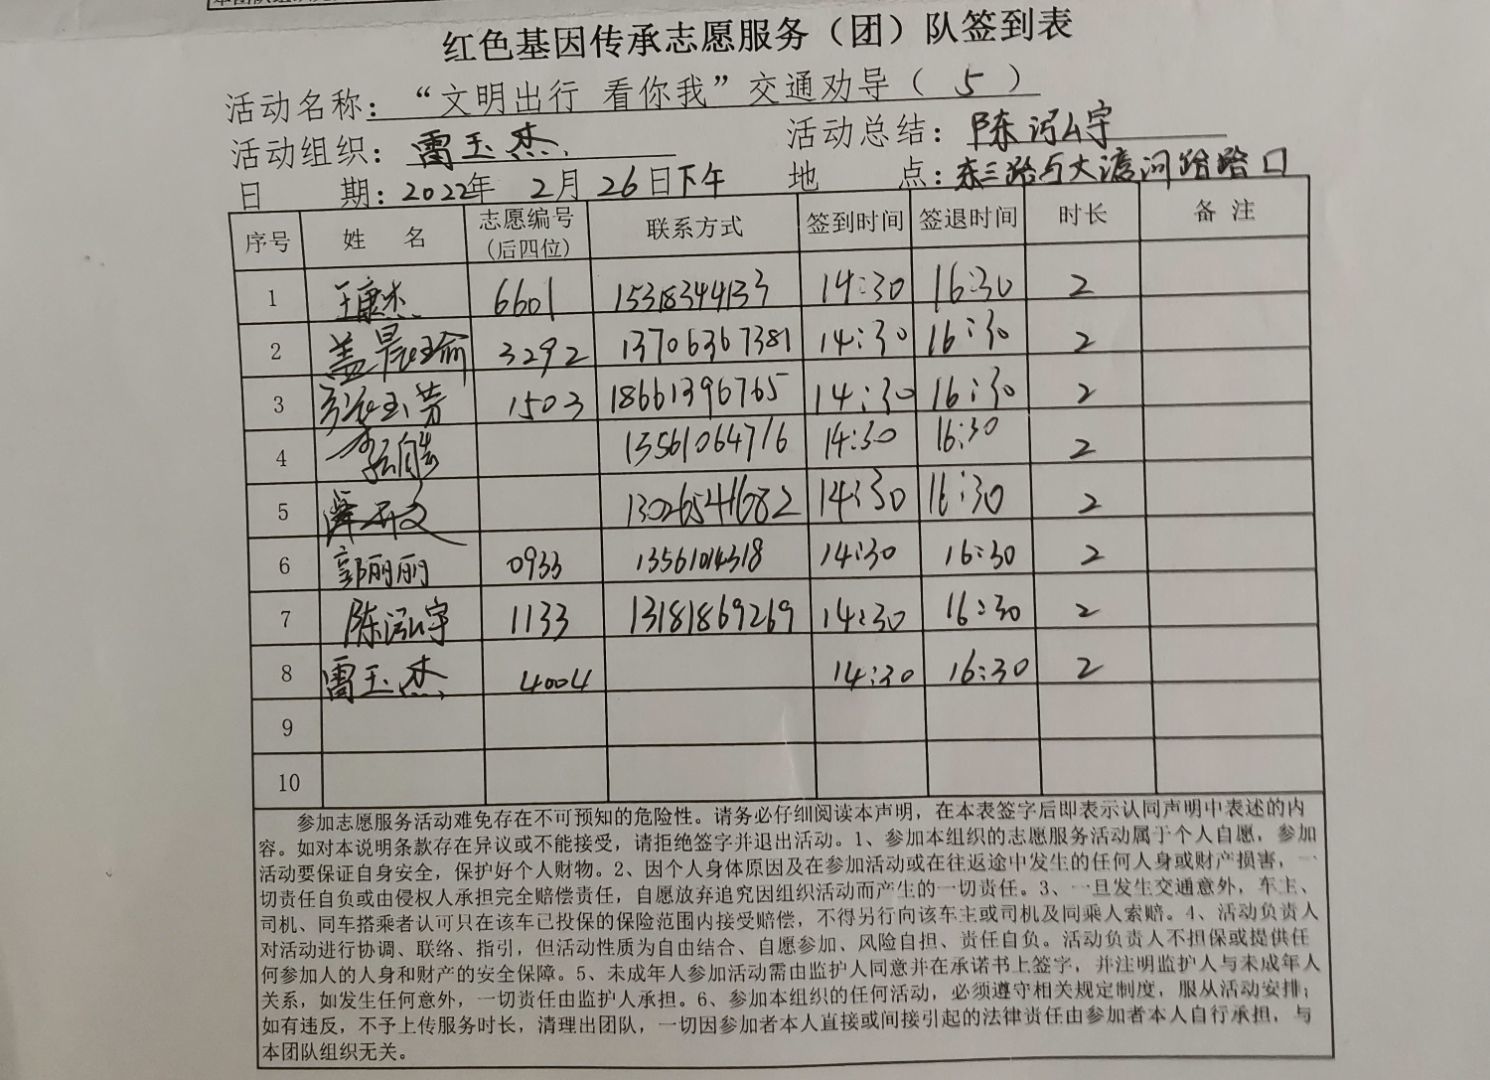 红色基因传承志愿服务（团）队签到表
活动名称：“文明出行 看你我”交通劝导（ 5 ）
活动组织：雷玉杰 活动总结：陈泓宇
日 期：2022年 2月 26日下午 地 点：东三路与大渡河路路口
序号 姓 名 志愿编号（后四位） 联系方式 签到时间 签退时间 时长 备 注
1 王康杰 6601 15318344133 14:30 16:30 2
2 盖晨瑜 3292 13706367381 14:30 16:30 2
3 张玉芳 1503 18661396765 14:30 16:30 2
4 13561064716 14:30 16:30 2
5 13026541682 14:30 16:30 2
6 郭丽丽 0933 14:30 16:30 2
7 陈泓宇 1133 13181869269 14:30 16:30 2
8 雷玉杰 4004 14:30 16:30 2
9
10
参加志愿服务活动难免存在不可预知的危险性。请务必仔细阅读本声明，在本表签字后即表示认同声明中表述的内
容。如对本说明条款存在异议或不能接受，请拒绝签字并退出活动。1、参加本组织的志愿服务活动属于个人自愿，参加
活动要保证自身安全，保护好个人财物。2、因个人身体原因及在参加活动或在往返途中发生的任何人身或财产损害，一
切责任自负或由侵权人承担完全赔偿责任，自愿放弃追究因组织活动而产生的一切责任。3、一旦发生交通意外，车主、
司机、同车搭乘者认可只在该车已投保的保险范围内接受赔偿，不得另行向该车主或司机及同乘人索赔。4、活动负责人
对活动进行协调、联络、指引，但活动性质为自由结合、自愿参加、风险自担、责任自负。活动负责人不担保或提供任
何参加人的人身和财产的安全保障。5、未成年人参加活动需由监护人同意并在承诺书上签字，并注明监护人与未成年人
关系，如发生任何意外，一切责任由监护人承担。6、参加本组织的任何活动，必须遵守相关规定制度，服从活动安排；
如有违反，不予上传服务时长，清理出团队，一切因参加者本人直接或间接引起的法律责任由参加者本人自行承担，与
本团队组织无关。